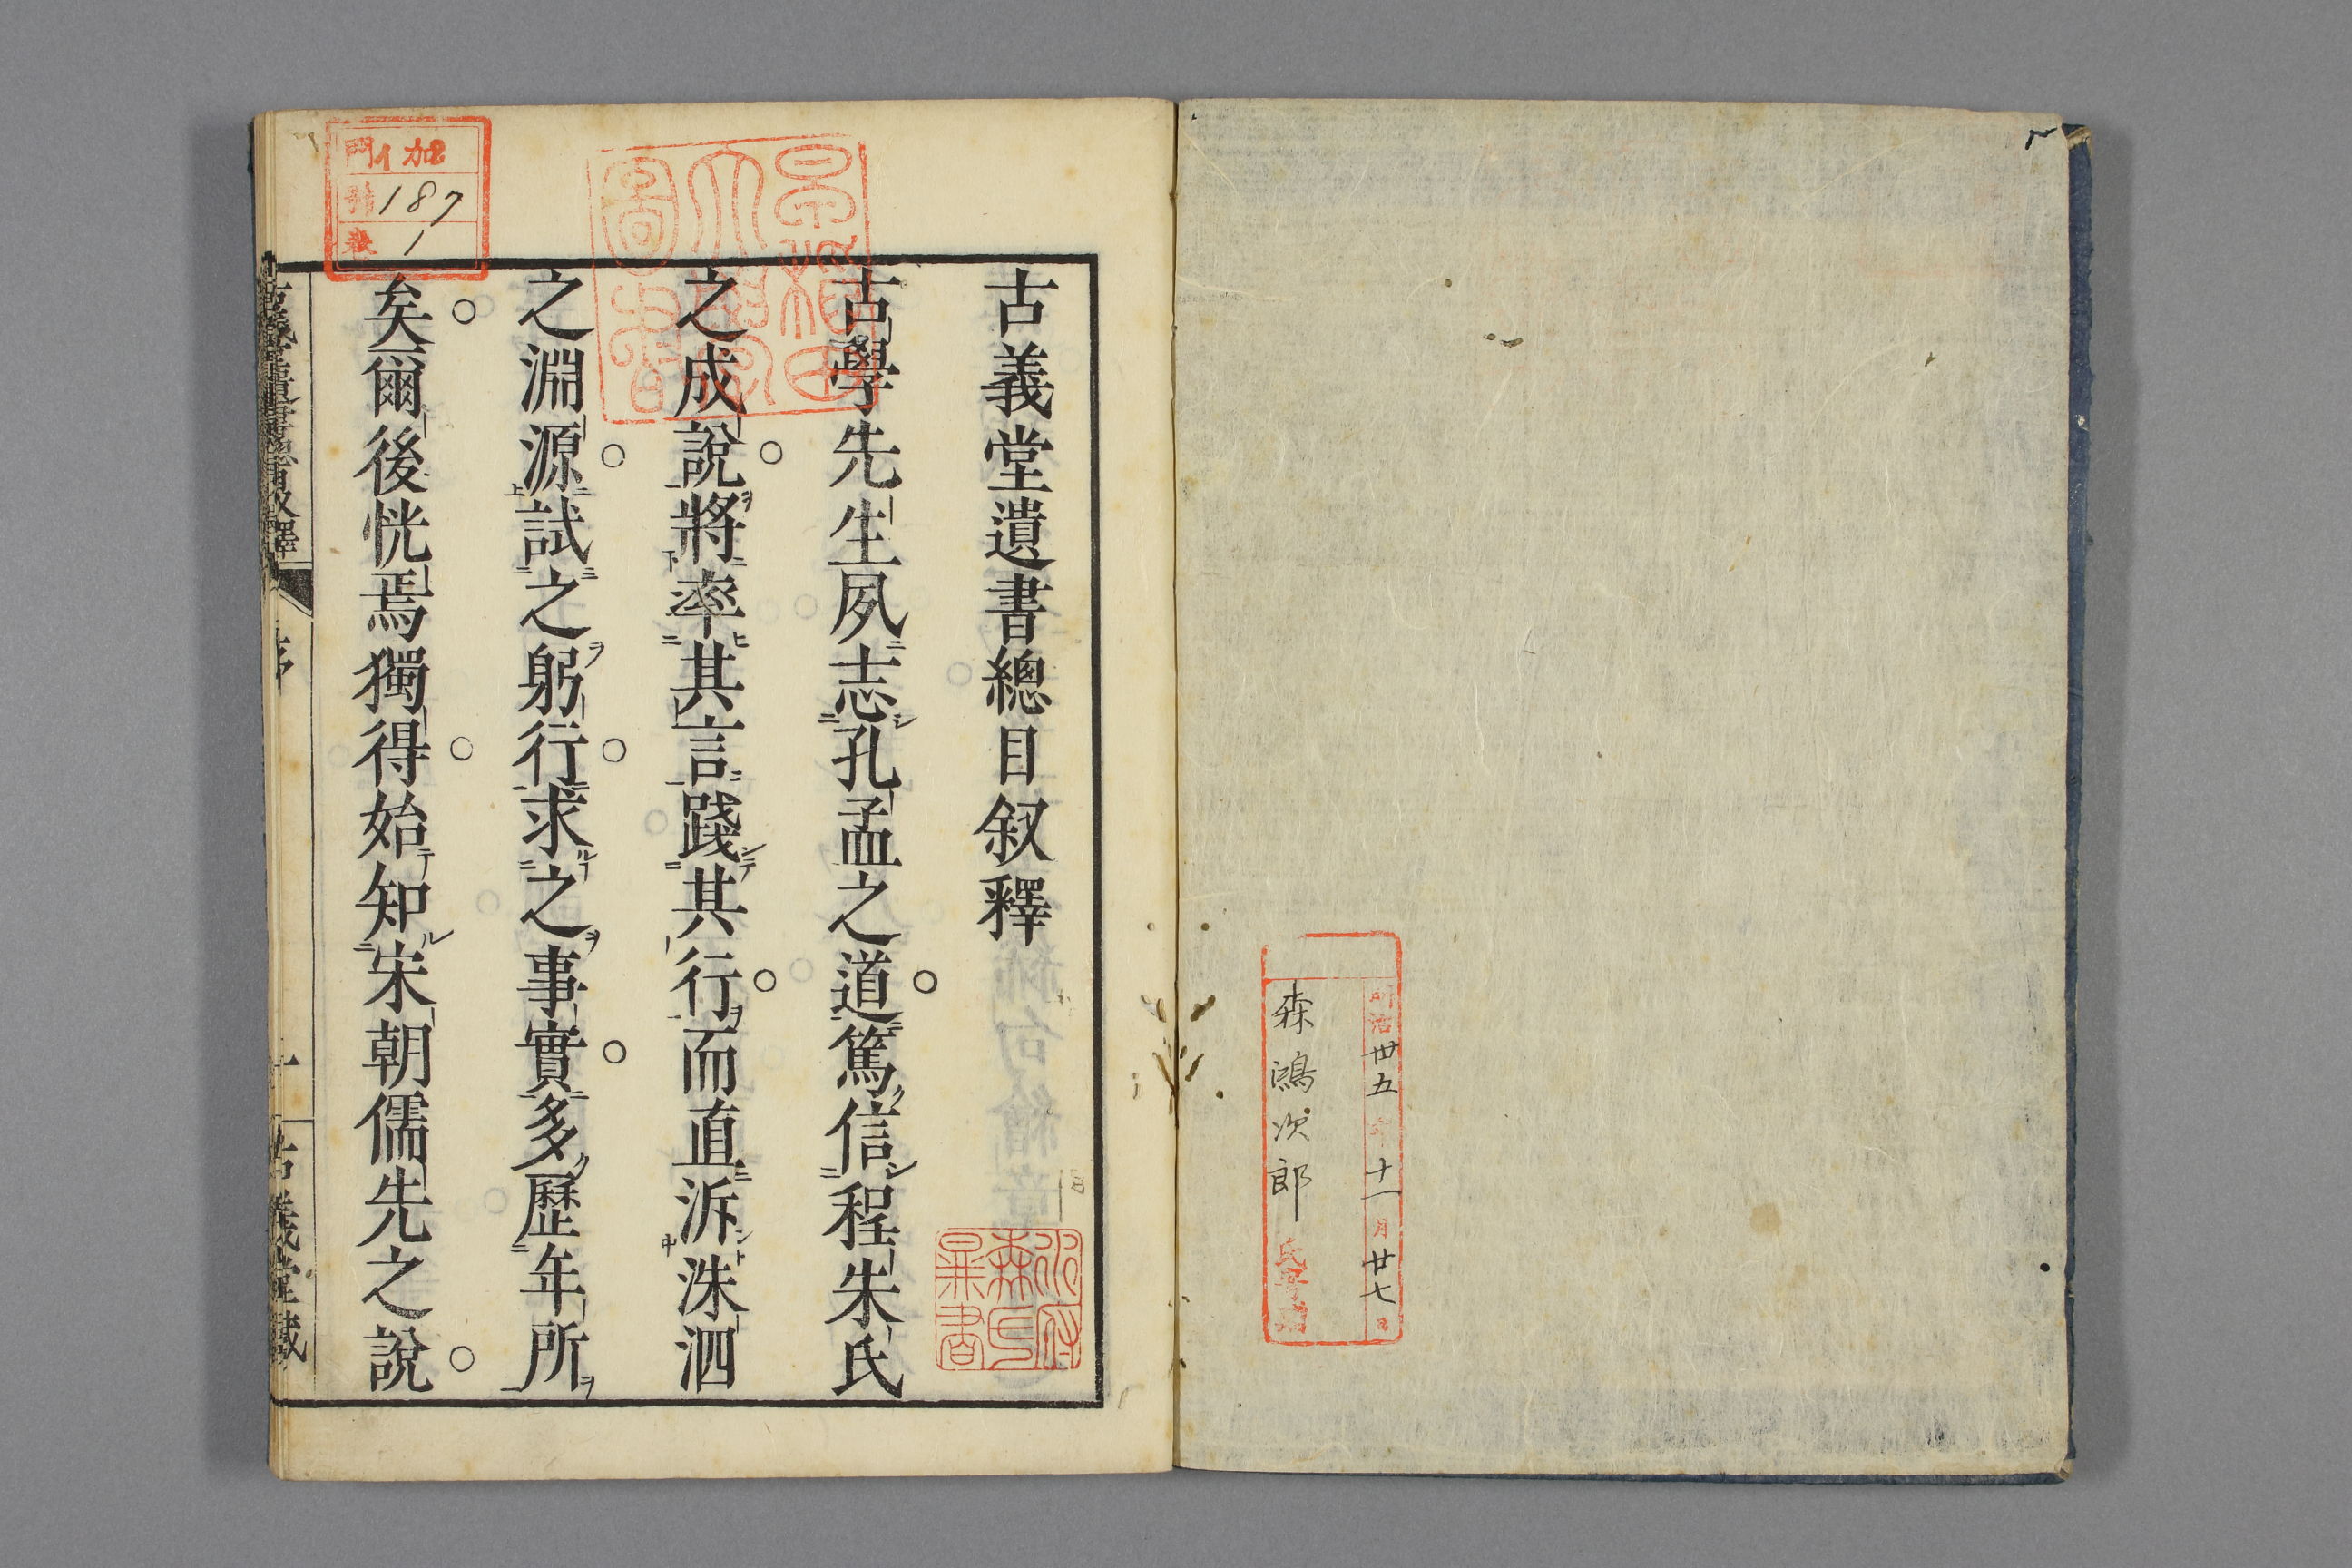 明治卅五年十一月廿七日
森鴻次郎氏寄贈
古義堂遺書總目叙釋
古學先生夙志孔孟之道篤信程朱氏
之成說將率其言踐其行而直泝洙泗
之淵源試之躬行求之事實多歷年所
矣爾後恍焉獨得始知宋朝儒先之說
古義堂遺書總目叙釋
序
一
古義堂藏
門 イ加2
號 187
卷 1
早稻田大學圖書
水府森氏巣書